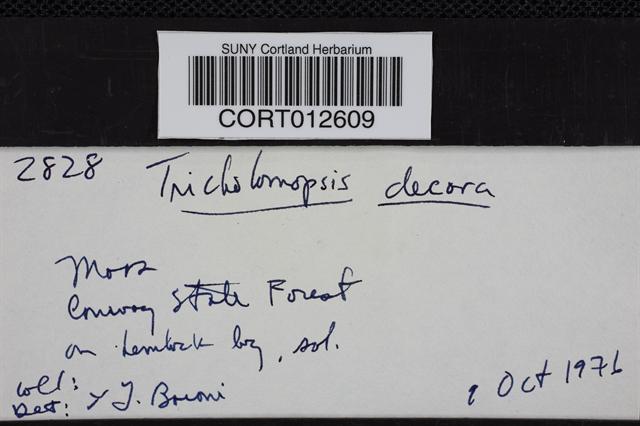 SUNY Cortland Herbarium
CORT012609
2828 Tricholomopsis decora
Mass
Conway State Forest
on hemlock log, sol.
coll:
Det: J. Baroni
9 Oct 1976